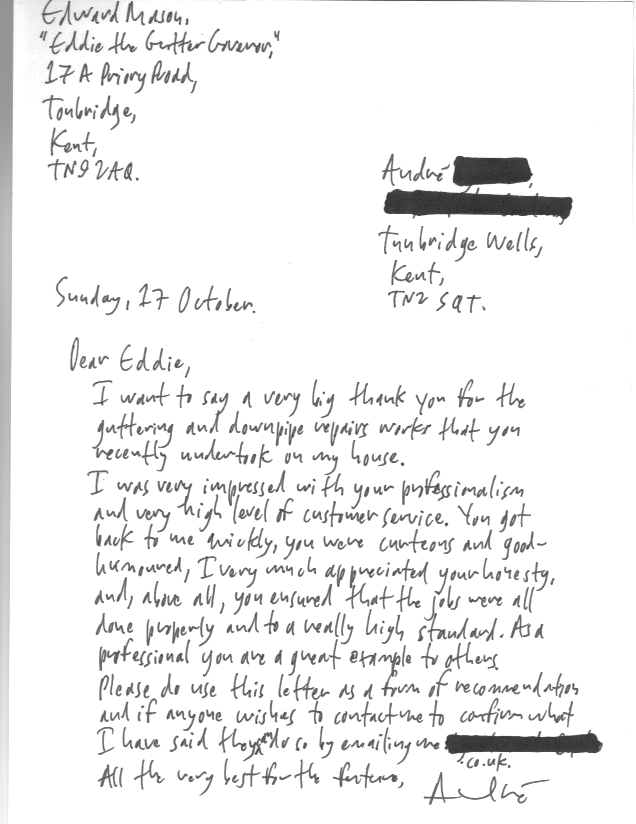 Edward Mason,
"Eddie the Gutter Governor,"
17A Priory Road,
Tonbridge,
Kent,
TN9 2AQ.
André
Tunbridge Wells,
Kent,
TN2 5QT.
Sunday, 17 October.
Dear Eddie,
I want to say a very big thank you for the
guttering and downpipe repairs works that you
recently undertook on my house.
I was very impressed with your professionalism
and very high level of customer service. You got
back to me quickly, you were courteous and good-
humoured, I very much appreciated your honesty,
and, above all, you ensured that the jobs were all
done properly and to a really high standard. As a
professional you are a great example to others
Please do use this letter as a form of recommendation
and if anyone wishes to contact me to confirm what
I have said they can do so by emailing me
.co.uk.
All the very best for the future,
André